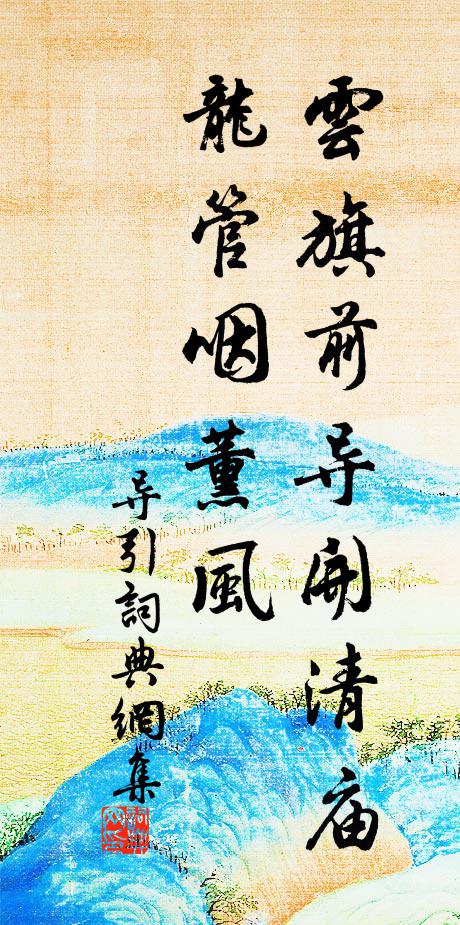 雲旗前导開清庙
龍管咽薰風
导引詞典網集